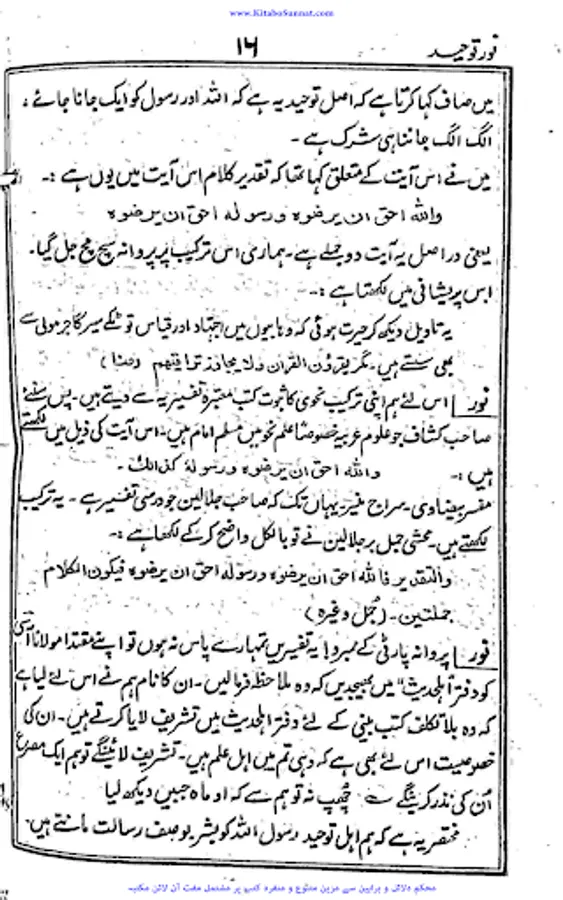 www.KitaboSunnat.com
نور توحید
۱۶
میں صاف کہا کرتا ہے کہ اصل توحید یہ ہے کہ اللہ اور رسول کو ایک جانا جائے ،
الگ الگ جاننا ہی شرک ہے ۔
میں نے اس آیت کے متعلق کہا تھا کہ تقدیر کلام اس آیت میں یوں ہے :۔
واللہ احق ان یرضوہ ورسولہ احق ان یرضوہ
یعنی در اصل یہ آیت دو جملے ہے ۔ ہماری اس ترکیب پر پروانہ سچ مچ جل گیا۔
اس پریشانی میں لکھتا ہے :۔
یہ تاویل دیکھ کر حیرت ہوئی کہ وہابیوں میں اجتہاد اور قیاس تو ٹکے سیر گاجر مولی سے
بھی سستے ہیں ۔ مگر یقرؤن القران ولا یجاوز تراقیھم
نور اس لئے ہم اپنی ترکیب نحوی کا ثبوت کتب معتبرہ تفسیریہ سے دیتے ہیں ۔ پس سنئے
صاحب کشاف جو علوم عربیہ خصوصاً علم نحو میں مسلم امام ہیں ۔ اس آیت کی ذیل میں لکھتے
ہیں :۔ واللہ احق ان یرضوہ ورسولہ کذالک ۔
مفسر بیضاوی ۔ سراج منیر ۔ یہاں تک کہ صاحب جلالین جو درسی تفسیر ہے ۔ یہ ترکیب
لکھتے ہیں ۔ محشی جمل بر جلالین نے تو بالکل واضح کر کے لکھا ہے :۔
والتقدیر فاللہ احق ان یرضوہ ورسولہ احق ان یرضوہ فیکون الکلام
جملتین ۔ (جمل وغیرہ)
نور پروانہ پارٹی کے ممبرو! یہ تفسیریں تمہارے پاس نہ ہوں تو اپنے مقتدا مولانا
کو دفتر "اہلحدیث" میں بھیجدیں کہ وہ ملاحظہ فرمالیں ۔ ان کا نام ہم نے اس لئے لیا ہے
کہ وہ بلا تکلف کتب بینی کے لئے دفتر اہلحدیث میں تشریف لایا کرتے ہیں ۔ ان کی
خصوصیت اس لئے بھی ہے کہ وہی تم میں اہل علم ہیں ۔ تشریف لائینگے تو ہم ایک مصرع
اُن کی نذر کرینگے ؎ چھپ نہ تو ہم سے کہ او ماہ جبیں دیکھ لیا
مختصر یہ ہے کہ ہم اہل توحید رسول اللہ کو بشر بوصف رسالت مانتے ہیں ۔
محکم دلائل و براہین سے مزین متنوع و منفرد کتب پر مشتمل مفت آن لائن مکتبہ